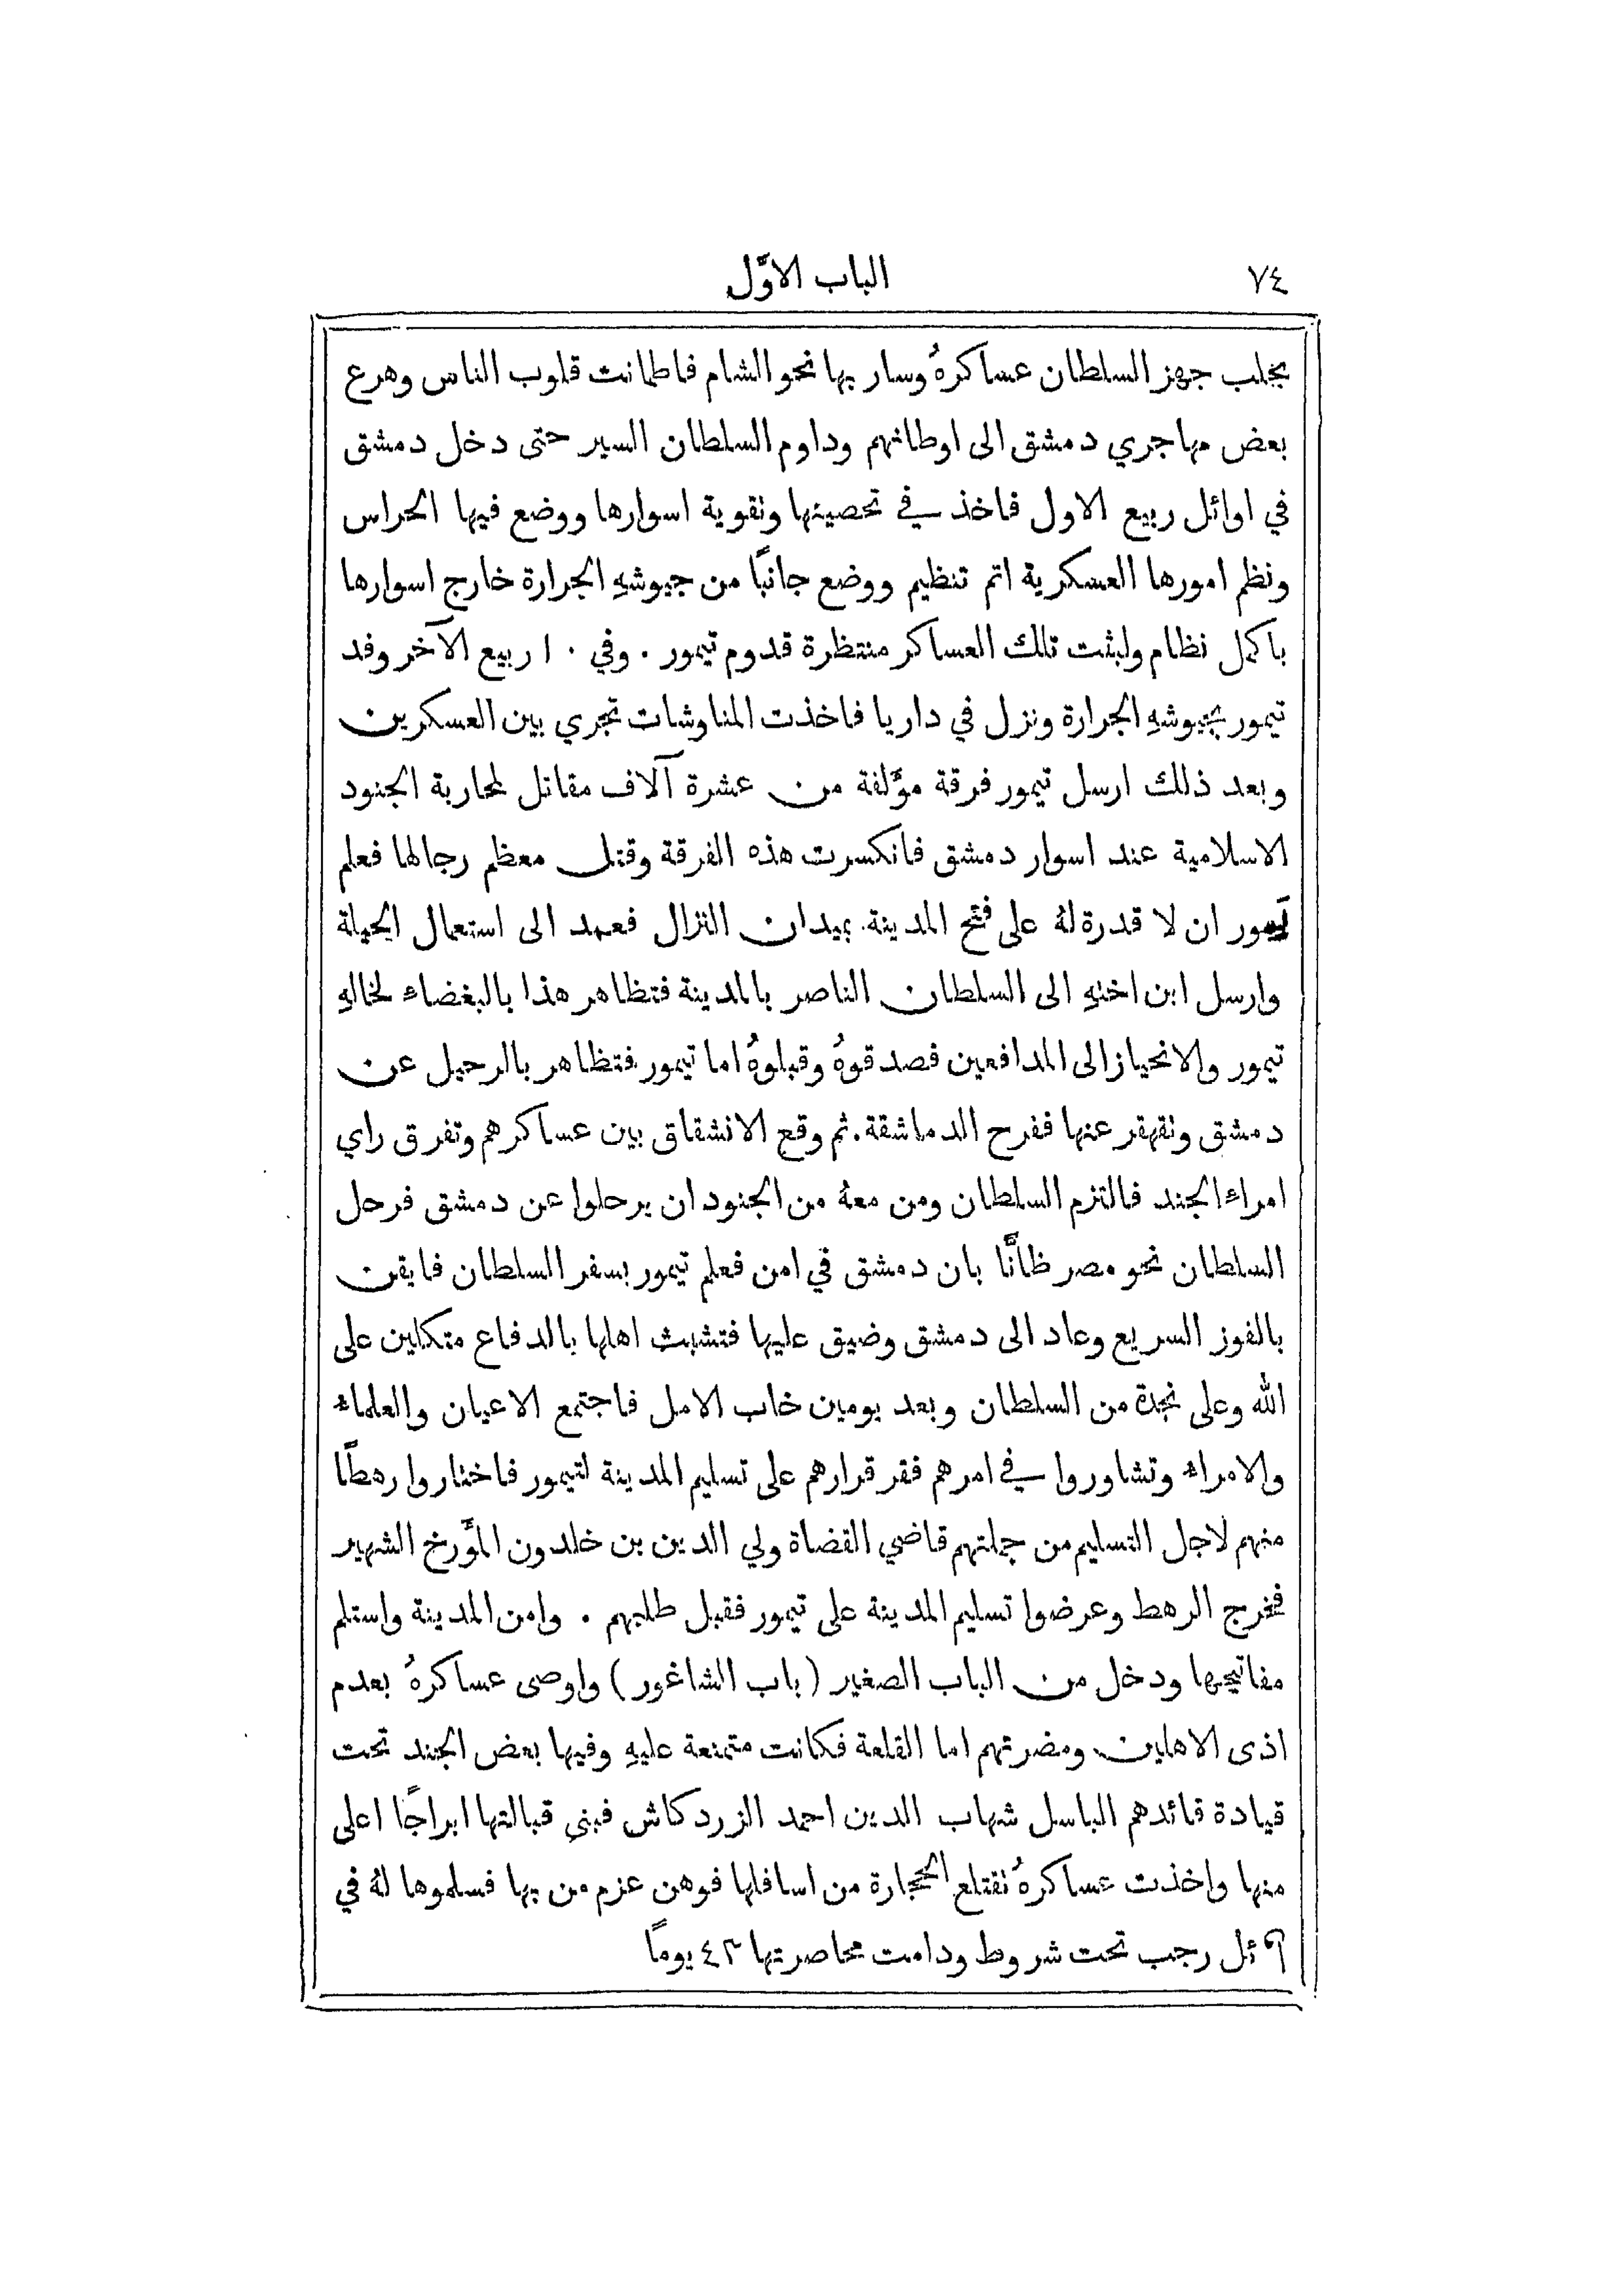 ٧٤
الباب الاوَّل
بحلب جهز السلطان عساكرهُ وسار بها نحو الشام فاطمانت قلوب الناس وهرع
بعض مهاجري دمشق الى اوطانهم وداوم السلطان السير حتى دخل دمشق
في اوائل ربيع الاول فاخذ في تحصينها وتقوية اسوارها ووضع فيها الحراس
ونظم امورها العسكرية اتم تنظيم ووضع جانبًا من جيوشهِ الجرارة خارج اسوارها
باكمل نظام ولبثت تلك العساكر منتظرة قدوم تيمور . وفي ١٠ ربيع الآخر وفد
تيمور بجيوشهِ الجرارة ونزل في داريا فاخذت المناوشات تجري بين العسكرين
وبعد ذلك ارسل تيمور فرقة مؤَلفة من عشرة آلاف مقاتل لمحاربة الجنود
الاسلامية عند اسوار دمشق فانكسرت هذه الفرقة وقتل معظم رجالها فعلم
تيمور ان لا قدرة لهُ على فتح المدينة بميدان النزال فعمد الى استعمال الحيلة
وارسل ابن اختهِ الى السلطان الناصر بالمدينة فتظاهر هذا بالبغضاء لخالهِ
تيمور والانحياز الى المدافعين فصدقوهُ وقبلوهُ اما تيمور فتظاهر بالرحيل عن
دمشق وتقهقر عنها ففرح الدماشقة. ثم وقع الانشقاق بين عساكرهم وتفرق راي
امراء الجند فالتزم السلطان ومن معهُ من الجنود ان يرحلوا عن دمشق فرحل
السلطان نحو مصر ظانًّا بان دمشق في امن فعلم تيمور بسفر السلطان فايقن
بالفوز السريع وعاد الى دمشق وضيق عليها فتشبث اهلها بالدفاع متكلين على
الله وعلى نجدة من السلطان وبعد يومين خاب الامل فاجتمع الاعيان والعلماء
والامراء وتشاوروا في امرهم فقر قرارهم على تسليم المدينة لتيمور فاختاروا رهطًا
منهم لاجل التسليم من جملتهم قاضي القضاة ولي الدين بن خلدون المؤَرخ الشهير
فخرج الرهط وعرضوا تسليم المدينة على تيمور فقبل طلبهم . وامن المدينة واستلم
مفاتيحها ودخل من الباب الصغير ( باب الشاغور ) واوصى عساكرهُ بعدم
اذى الاهلين ومضرتهم اما القلعة فكانت متمنعة عليهِ وفيها بعض الجند تحت
قيادة قائدهم الباسل شهاب الدين احمد الزردكاش فبنى قبالتها ابراجًا اعلى
منها واخذت عساكرهُ تقتلع الحجارة من اسافلها فوهن عزم من بها فسلموها لهُ في
رجب تحت شروط ودامت محاصرتها ٤٣ يومًا